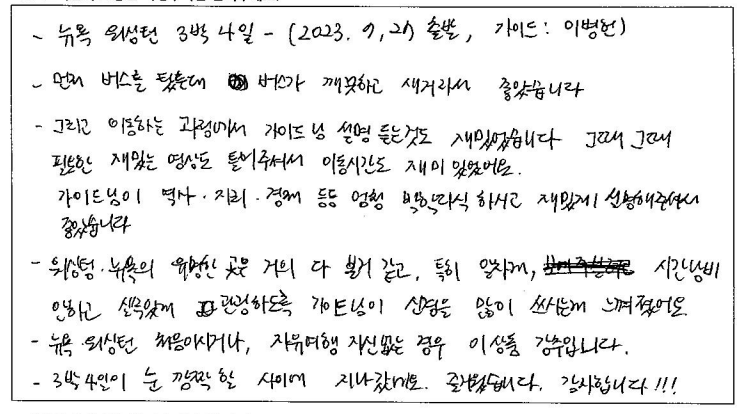 - 뉴욕 워싱턴 3박 4일 - (2023. 9, 27 출발, 가이드: 이병헌)
- 먼저 버스를 탔는데 버스가 깨끗하고 새거라서 좋았습니다
- 그리고 이동하는 과정에서 가이드님 설명 듣는것도 재밌었습니다 그때 그때
필요한 재밌는 영상도 틀어주셔서 이동시간도 재미 있었어요.
가이드님이 역사·지리·경제 등등 엄청 박학다식 하시고 재밌게 설명해주셔서
좋았습니다
- 워싱턴·뉴욕의 유명한 곳은 거의 다 본거 같고, 특히 알차게, 시간낭비
안하고 실속있게 관광하도록 가이드님이 신경을 많이 쓰시는게 느껴졌어요.
- 뉴욕·워싱턴 처음이시거나, 자유여행 자신없는 경우 이상품 강추입니다.
- 3박4일이 눈 깜짝 할 사이에 지나갔네요. 즐거웠습니다. 감사합니다!!!